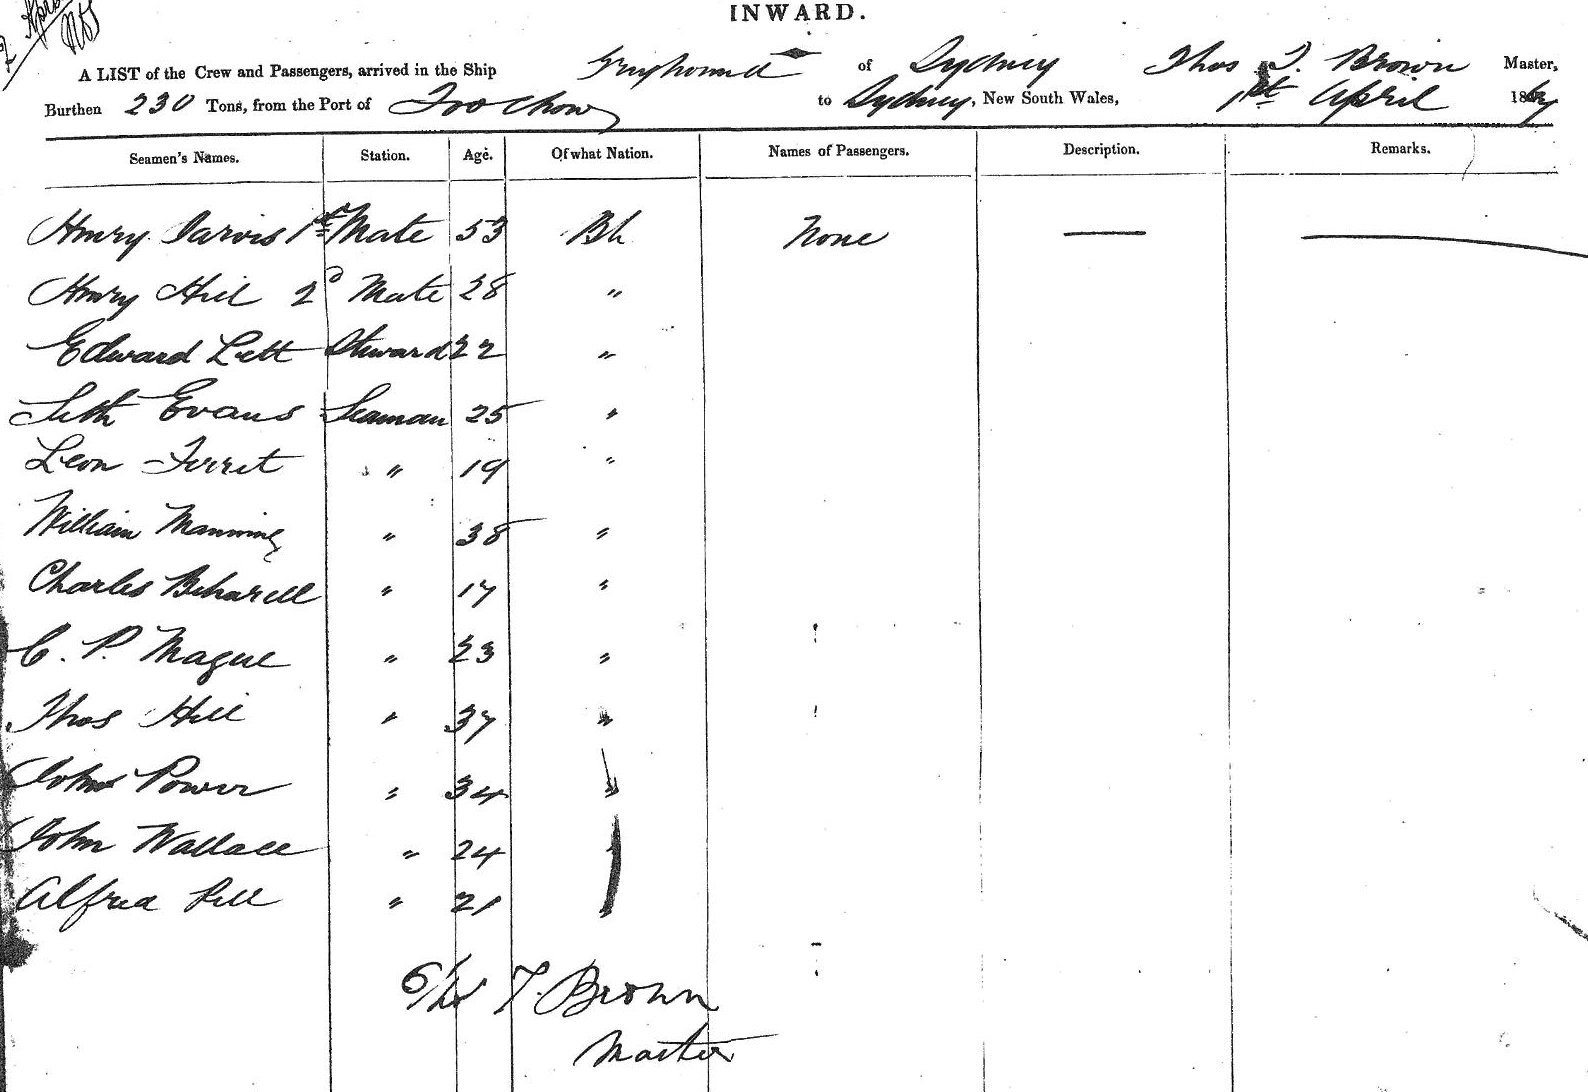 2 April
INWARD.
A LIST of the Crew and Passengers, arrived in the Ship Greyhound of Sydney Thos T. Brown Master,
Burthen 230 Tons, from the Port of Foo Chow to Sydney, New South Wales, 1st April 186
Seamen's Names. Station. Age. Of what Nation. Names of Passengers. Description. Remarks.
Henry Jarvis 1st Mate 53 Bh None —— ——
Henry Hill 2d Mate 28 "
Edward Lett Steward 22 "
Seth Evans Seaman 25 "
Leon Ferret " 19 "
William Manning " 38 "
Charles Beharell " 17 "
C. P. Mague " 23 "
Thos Hill " 37 "
John Power " 34 "
John Wallace " 24 "
Alfred " 21 "
T. Brown
Master